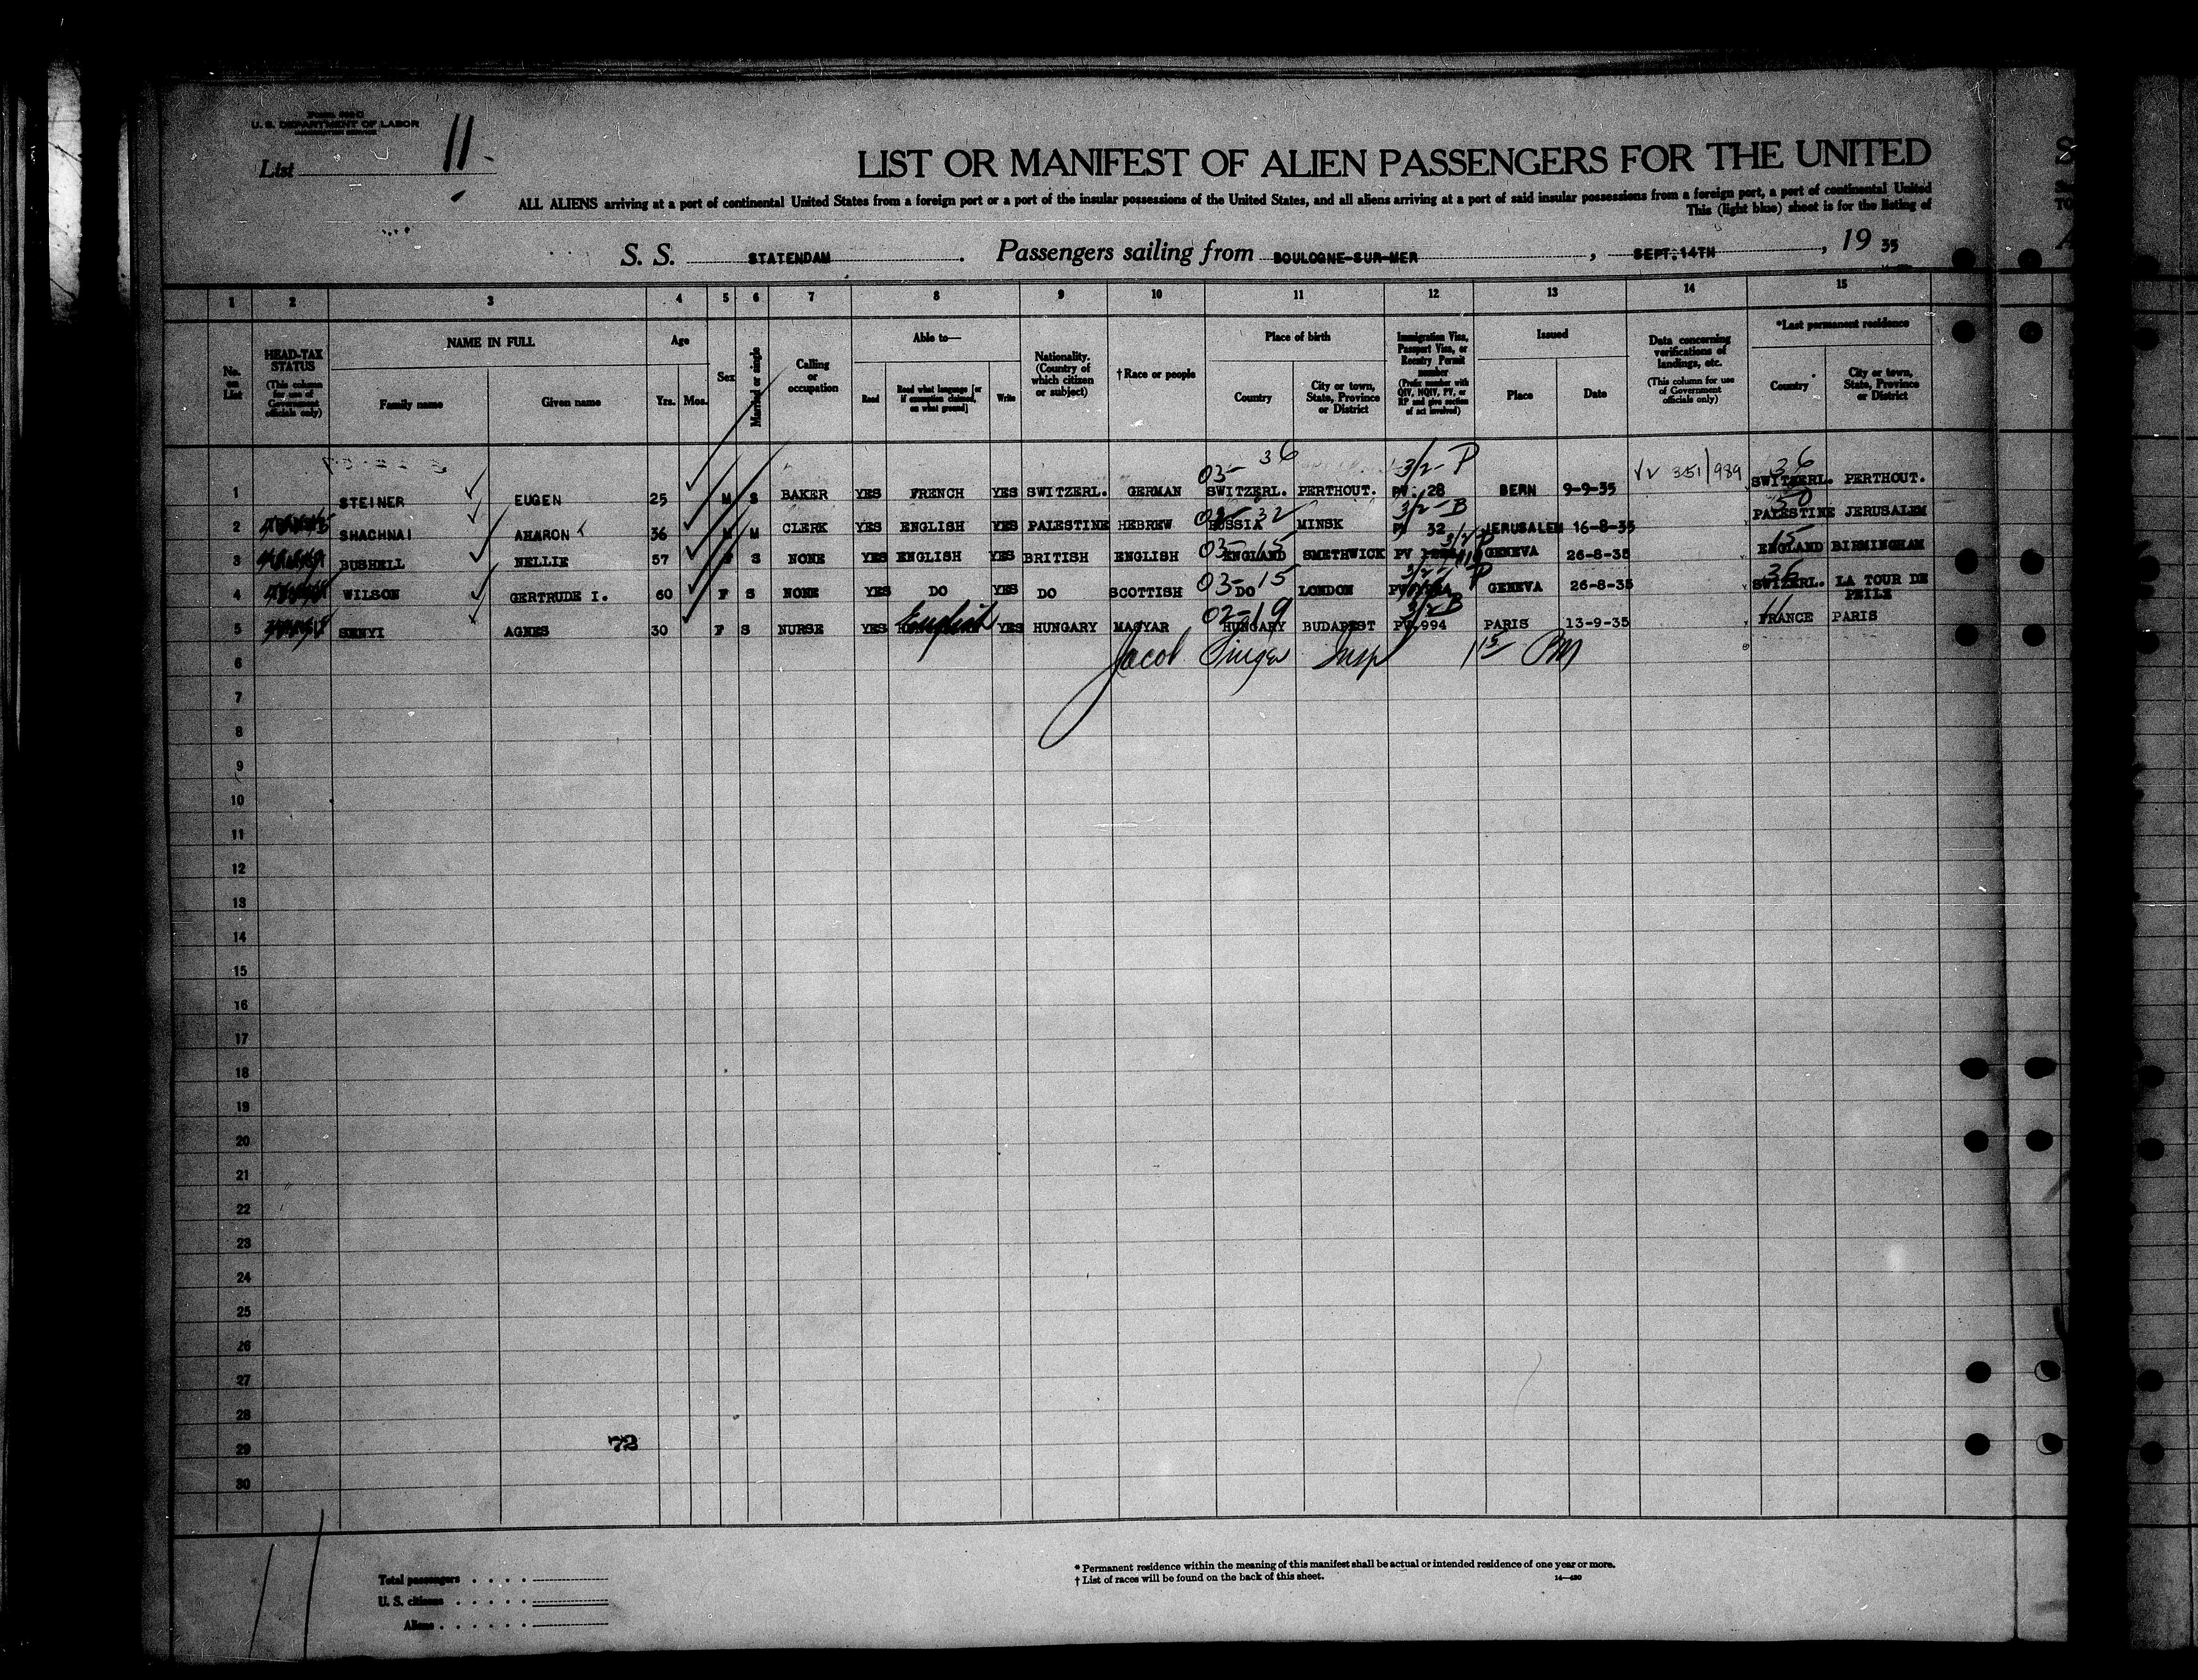 U. S. DEPARTMENT OF LABOR
List 11
LIST OR MANIFEST OF ALIEN PASSENGERS FOR THE UNITED
ALL ALIENS arriving at a port of continental United States from a foreign port or a port of the insular possessions of the United States, and all aliens arriving at a port of said insular possessions from a foreign port, a port of continental United
This (light blue) sheet is for the listing of
S. S. STATENDAM. Passengers sailing from BOULOGNE-SUR-MER, SEPT.14TH, 19 35
1 2 3 4 5 6 7 8 9 10 11 12 13 14 15
No. on List
HEAD-TAX STATUS (This column for use of Government officials only)
NAME IN FULL
Family name
Given name
Age
Yrs. Mos.
Sex
Married or single
Calling or occupation
Able to—
Read
Read what language [or if exemption claimed, on what ground]
Write
Nationality. (Country of which citizen or subject)
† Race or people
Place of birth
Country
City or town, State, Province or District
Immigration Visa, Passport Visa, or Reentry Permit number (Prefix number with QIV, NQIV, PV, or RP and give section of act involved)
Issued
Place
Date
Data concerning verifications of landings, etc. (This column for use of Government officials only)
*Last permanent residence
Country
City or town, State, Province or District
03- 36 3/2- P 36
1 STEINER EUGEN 25 M S BAKER YES FRENCH YES SWITZERL. GERMAN SWITZERL. PERTHOUT. PV. 28 BERN 9-9-35 351/989 SWITZERL. PERTHOUT.
32 3/2-B 50
2 SHACHNAI AHARON 36 M M CLERK YES ENGLISH YES PALESTINE HEBREW RUSSIA MINSK 32 JERUSALEM 16-8-35 PALESTINE JERUSALEM
03-15 15
3 BUSHELL NELLIE 57 F S NONE YES ENGLISH YES BRITISH ENGLISH ENGLAND SMETHWICK PV GENEVA 26-8-35 ENGLAND BIRMINGHAM
03-15 P 36
4 WILSON GERTRUDE I. 60 F S NONE YES DO YES DO SCOTTISH DO LONDON GENEVA 26-8-35 SWITZERL. LA TOUR DE PEILZ
English 02-19 3/2 B 11
5 SENYI AGNES 30 F S NURSE YES YES HUNGARY MAGYAR HUNGARY BUDAPEST PV.994 PARIS 13-9-35 FRANCE PARIS
6 Jacob Singer Insp 1 15 PM
7
8
9
10
11
12
13
14
15
16
17
18
19
20
21
22
23
24
25
26
27
28
29 72
30
Total passengers
U. S. citizens
Aliens
* Permanent residence within the meaning of this manifest shall be actual or intended residence of one year or more.
† List of races will be found on the back of this sheet.
14—430